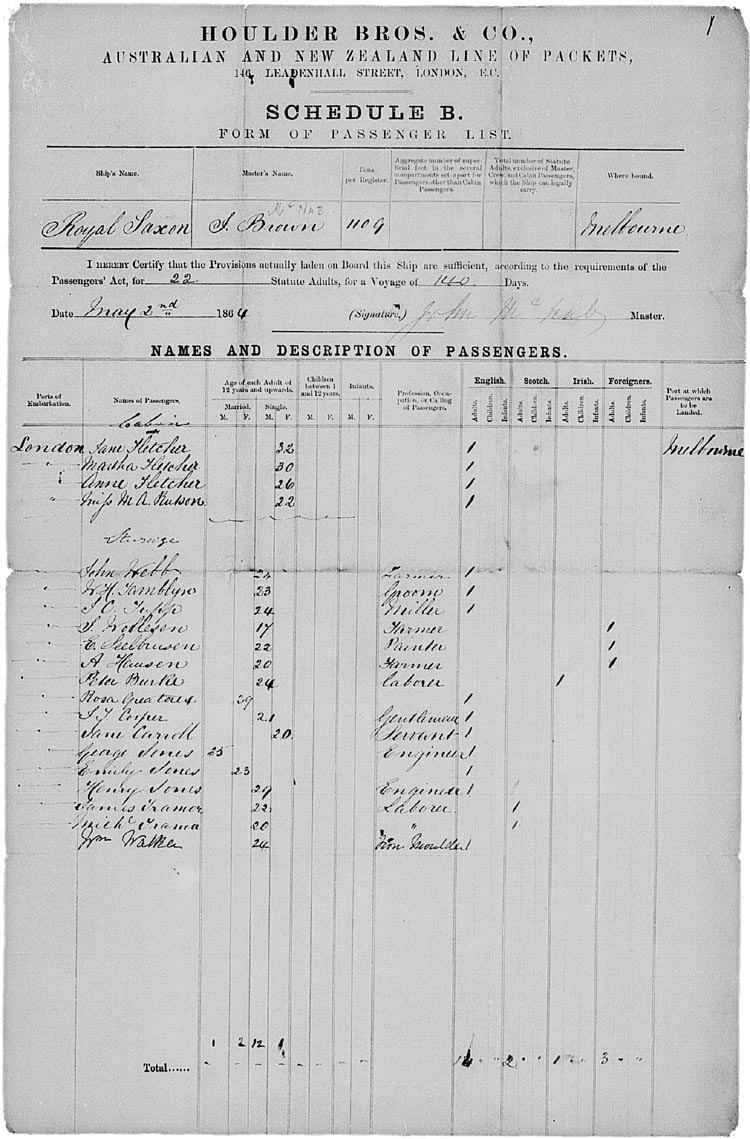 1
HOULDER BROS. & CO.,
AUSTRALIAN AND NEW ZEALAND LINE OF PACKETS,
146, LEADENHALL STREET, LONDON, E.C.
SCHEDULE B.
FORM OF PASSENGER LIST.
Ship's Name. Master's Name. Tons per Register. Aggregate number of superficial feet in the several compartments set apart for Passengers other than Cabin Passengers. Total number of Statute Adults, exclusive of Master, Crew, and Cabin Passengers, which the Ship can legally carry. Where bound.
Mc NAB
Royal Saxon J. Brown 1109 Melbourne
I HEREBY Certify that the Provisions actually laden on Board this Ship are sufficient, according to the requirements of the
Passengers' Act, for 22 Statute Adults, for a Voyage of 140 Days.
Date May 2nd 1864 (Signature.) John Mc Nab Master.
NAMES AND DESCRIPTION OF PASSENGERS.
Ports of Embarkation. Names of Passengers. Age of each Adult of 12 years and upwards. Children between 1 and 12 years. Infants. Profession, Occupation, or Calling of Passengers. English. Scotch. Irish. Foreigners. Port at which Passengers are to be Landed.
Married. Single. Adults. Children. Infants. Adults. Children. Infants. Adults. Children. Infants. Adults. Children. Infants.
M. F. M. F. M. F. M. F.
Cabin
London Jane Fletcher 32 1 Melbourne
" Martha Fletcher 30 1
" Anne Fletcher 26 1
" Miss M. A. 22 1
Steerage
John Webb 24 Farmer 1
W. H. Tamblyn 23 Groom 1
J. C. Tupp 24 Miller 1
S. 17 Farmer 1
E. 22 Painter 1
A Hansen 20 Farmer 1
Peter Burke 24 Laborer 1
Rosa Greatorex 29 1
J. J. Cooper 21 Gentleman 1
Jane Carroll 20 Servant 1
George Jones 25 Engineer 1
Emily Jones 23 1
Henry Jones 29 Engineer 1
James 22 Laborer 1
Michl 20 " 1
Wm Walker 24 Iron Moulder 1
1 2 12 1
Total...... 14 " " 2 " " 1 " " 3 " "